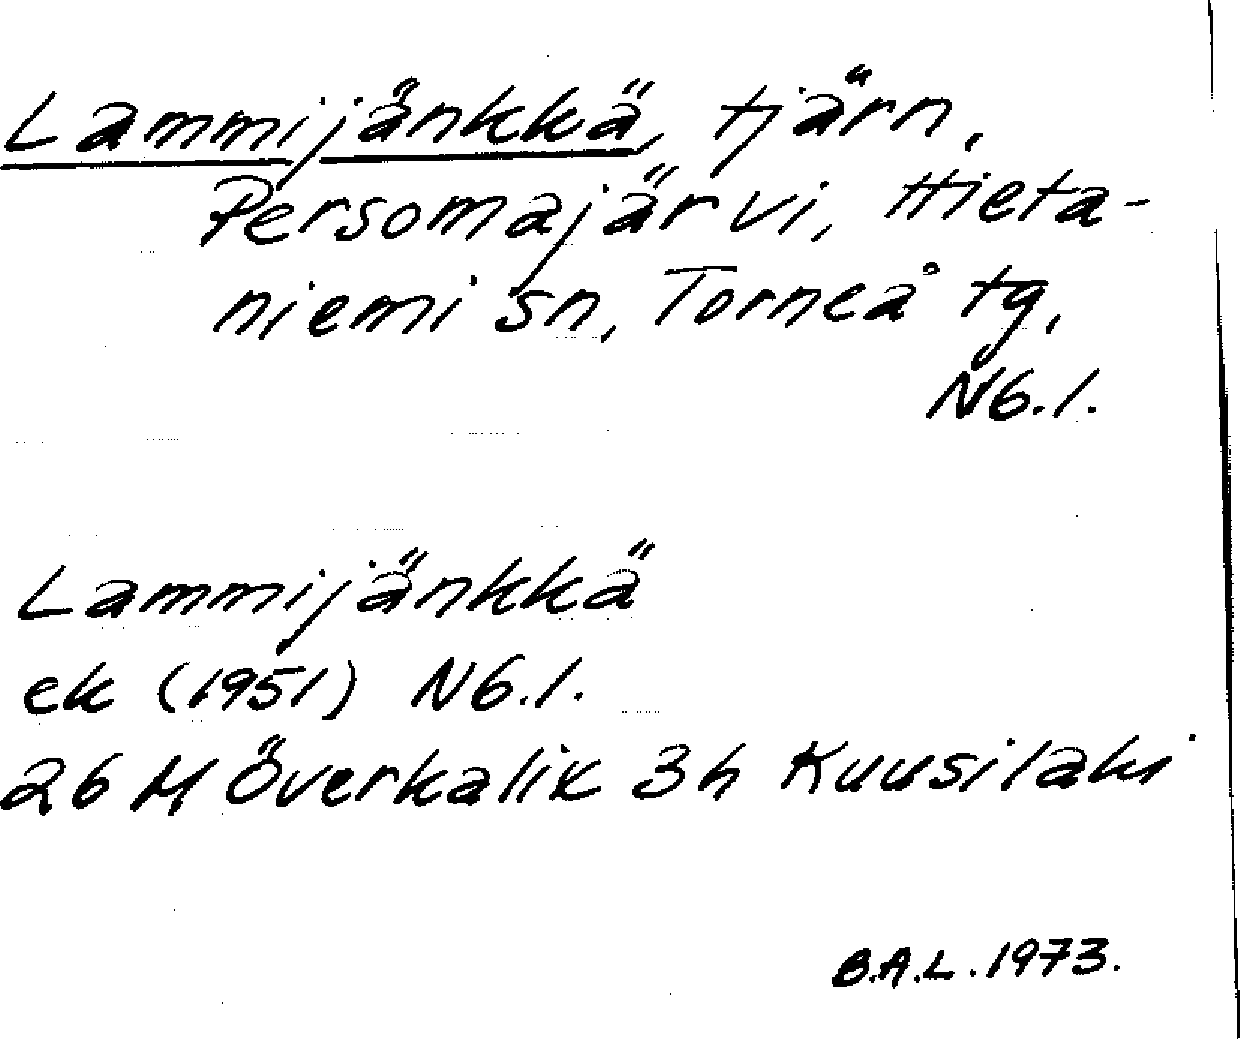 Lammijänkkä, tjärn,
Persomajärvi, Hieta-
niemi sn, Torneå tg,
N6.1.
Lammijänkkä
ek (1951) N6.1.
26 M Överkalix 3h Kuusilaki
B.A.L. 1973.